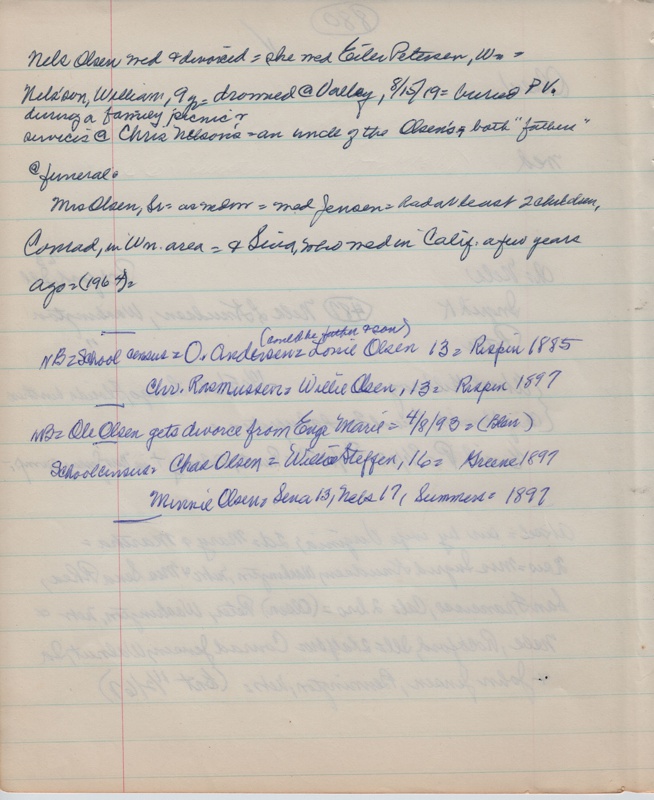 Nels Olsen med & divorced = she med Eiler Petersen, Wn =
Nels' son, William, 9 y = drowned @ Valley, 8/15/19 = buried P.V.
during a family picnic &
services @ Chris Nelson's = an uncle of the Olsen's & both "fathers"
@ funeral =
Mrs Olsen, Sr = as mdm = med Jensen = had at least 2 children,
Conrad, in Wn. area = & Sina, who med in Calif. a few years
ago = (1964) =
(could be father & son)
NB = School census = O. Andersen = Louie Olsen 13 = Rispin 1885
Chr. Rasmussen = Willie Olsen, 13 = Rispin 1897
NB = Ole Olsen gets divorce from Enge Marie = 4/8/93 = (Blair)
School census = Chas Olsen = Willie Steffen, 16 = Greene 1897
Minnie Olsen = Sena 13, Nels 17, Summers = 1897